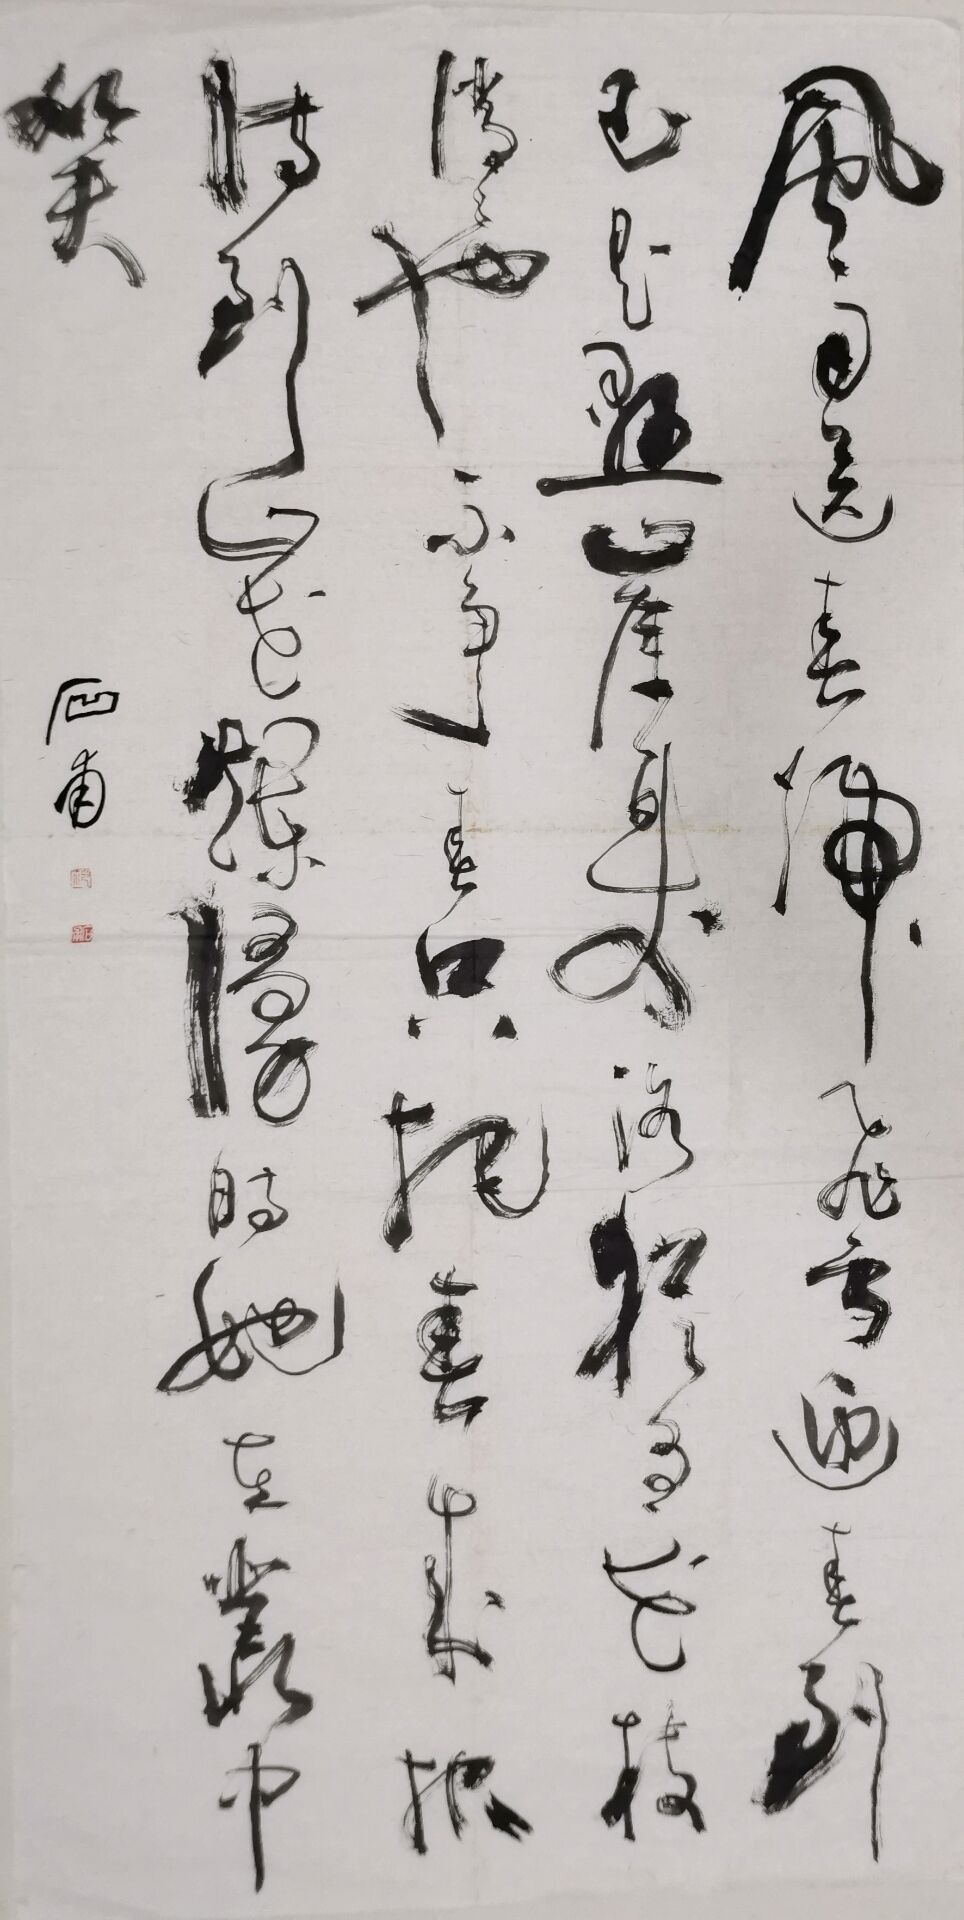 風雨送春歸飛雪迎春到
已是懸崖百丈冰猶有花枝
俏俏也不争春只把春來报
待到山花爛漫時她在叢中
笑